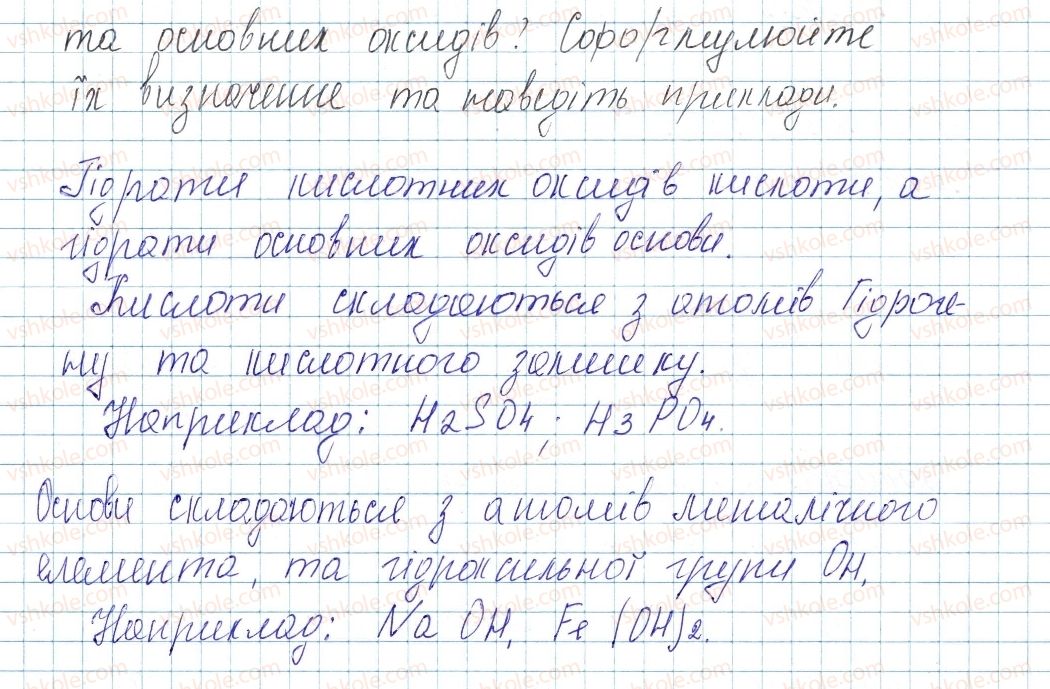 та основних оксидів? Сформулюйте
їх визначення та наведіть приклади.
Гідрати кислотних оксидів кислоти, а
гідрати основних оксидів основи.
Кислоти складаються з атомів Гідроге-
ну та кислотного залишку.
Наприклад: H2SO4; H3PO4.
Основи складаються з атомів металічного
елемента, та гідроксильної групи OH.
Наприклад: NaOH, Fe(OH)2.
vshkole.com